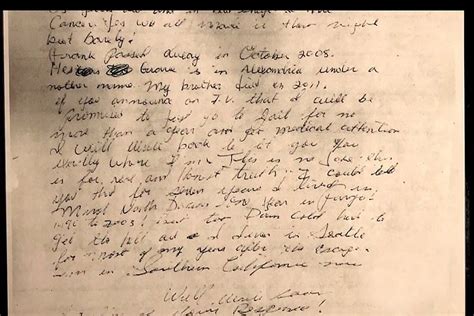 Cancer. Yes we all made it that night
but barely!
Frank passed away in October 2008.
His grave is in Alexandria under a
nother name. My brother died in 2011.
if you announce on T.V. that I will be
promised to first go to Jail for no
more than a year and get medical attention
I will write back to let you you
exactly where I am. This is no Joke this
is for real and honest truth. I could told
you that for seven years I lived in
Minot North Dakota and year in Fargo
to 2003
get the hell out I lived in Seattle
for most of my years after the escape.
in Southern California now
Will
Response!